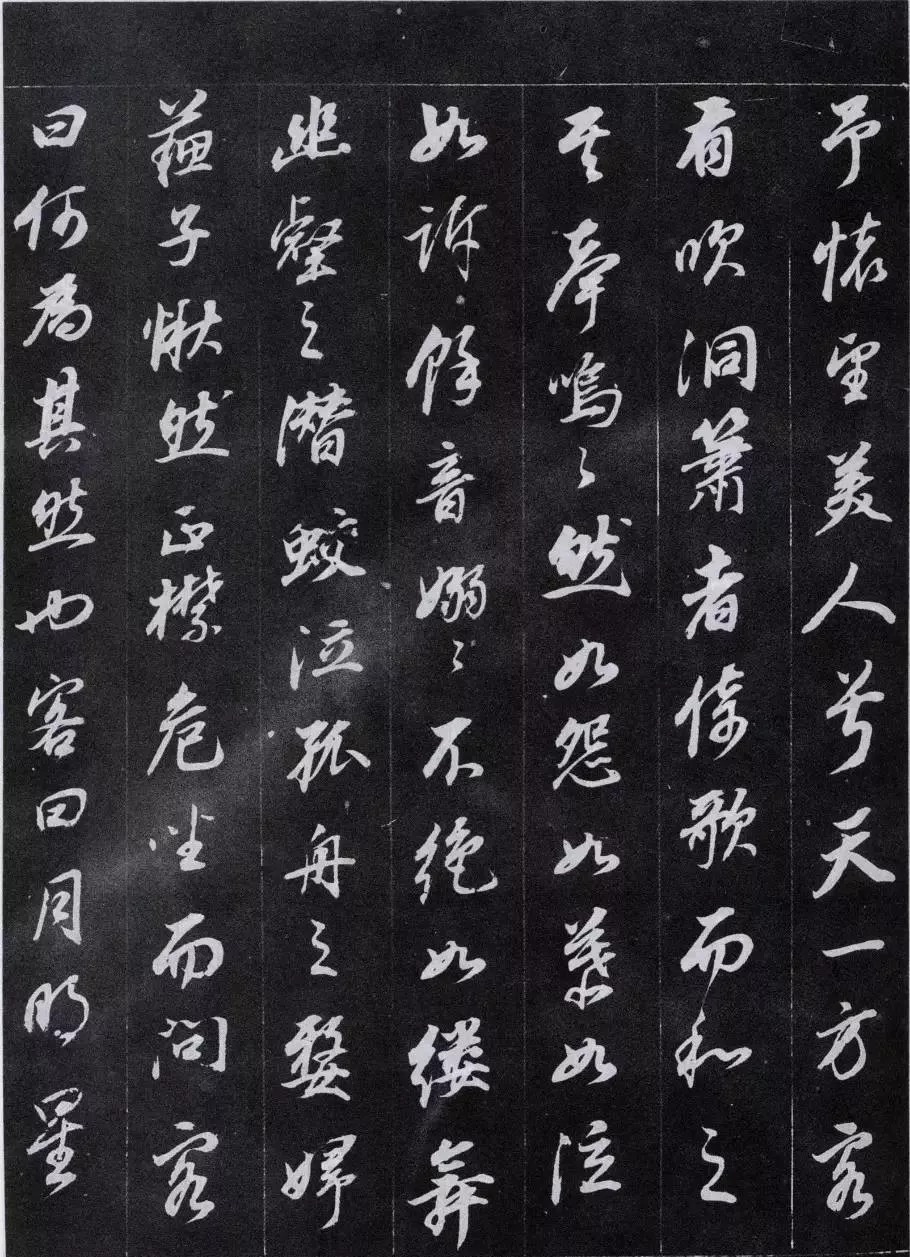 予懷望美人兮天一方客
有吹洞簫者倚歌而和之
其聲嗚々然如怨如慕如泣
如訴餘音嫋々不絕如縷舞
幽壑之潛蛟泣孤舟之嫠婦
蘇子愀然正襟危坐而問客
曰何為其然也客曰月明星